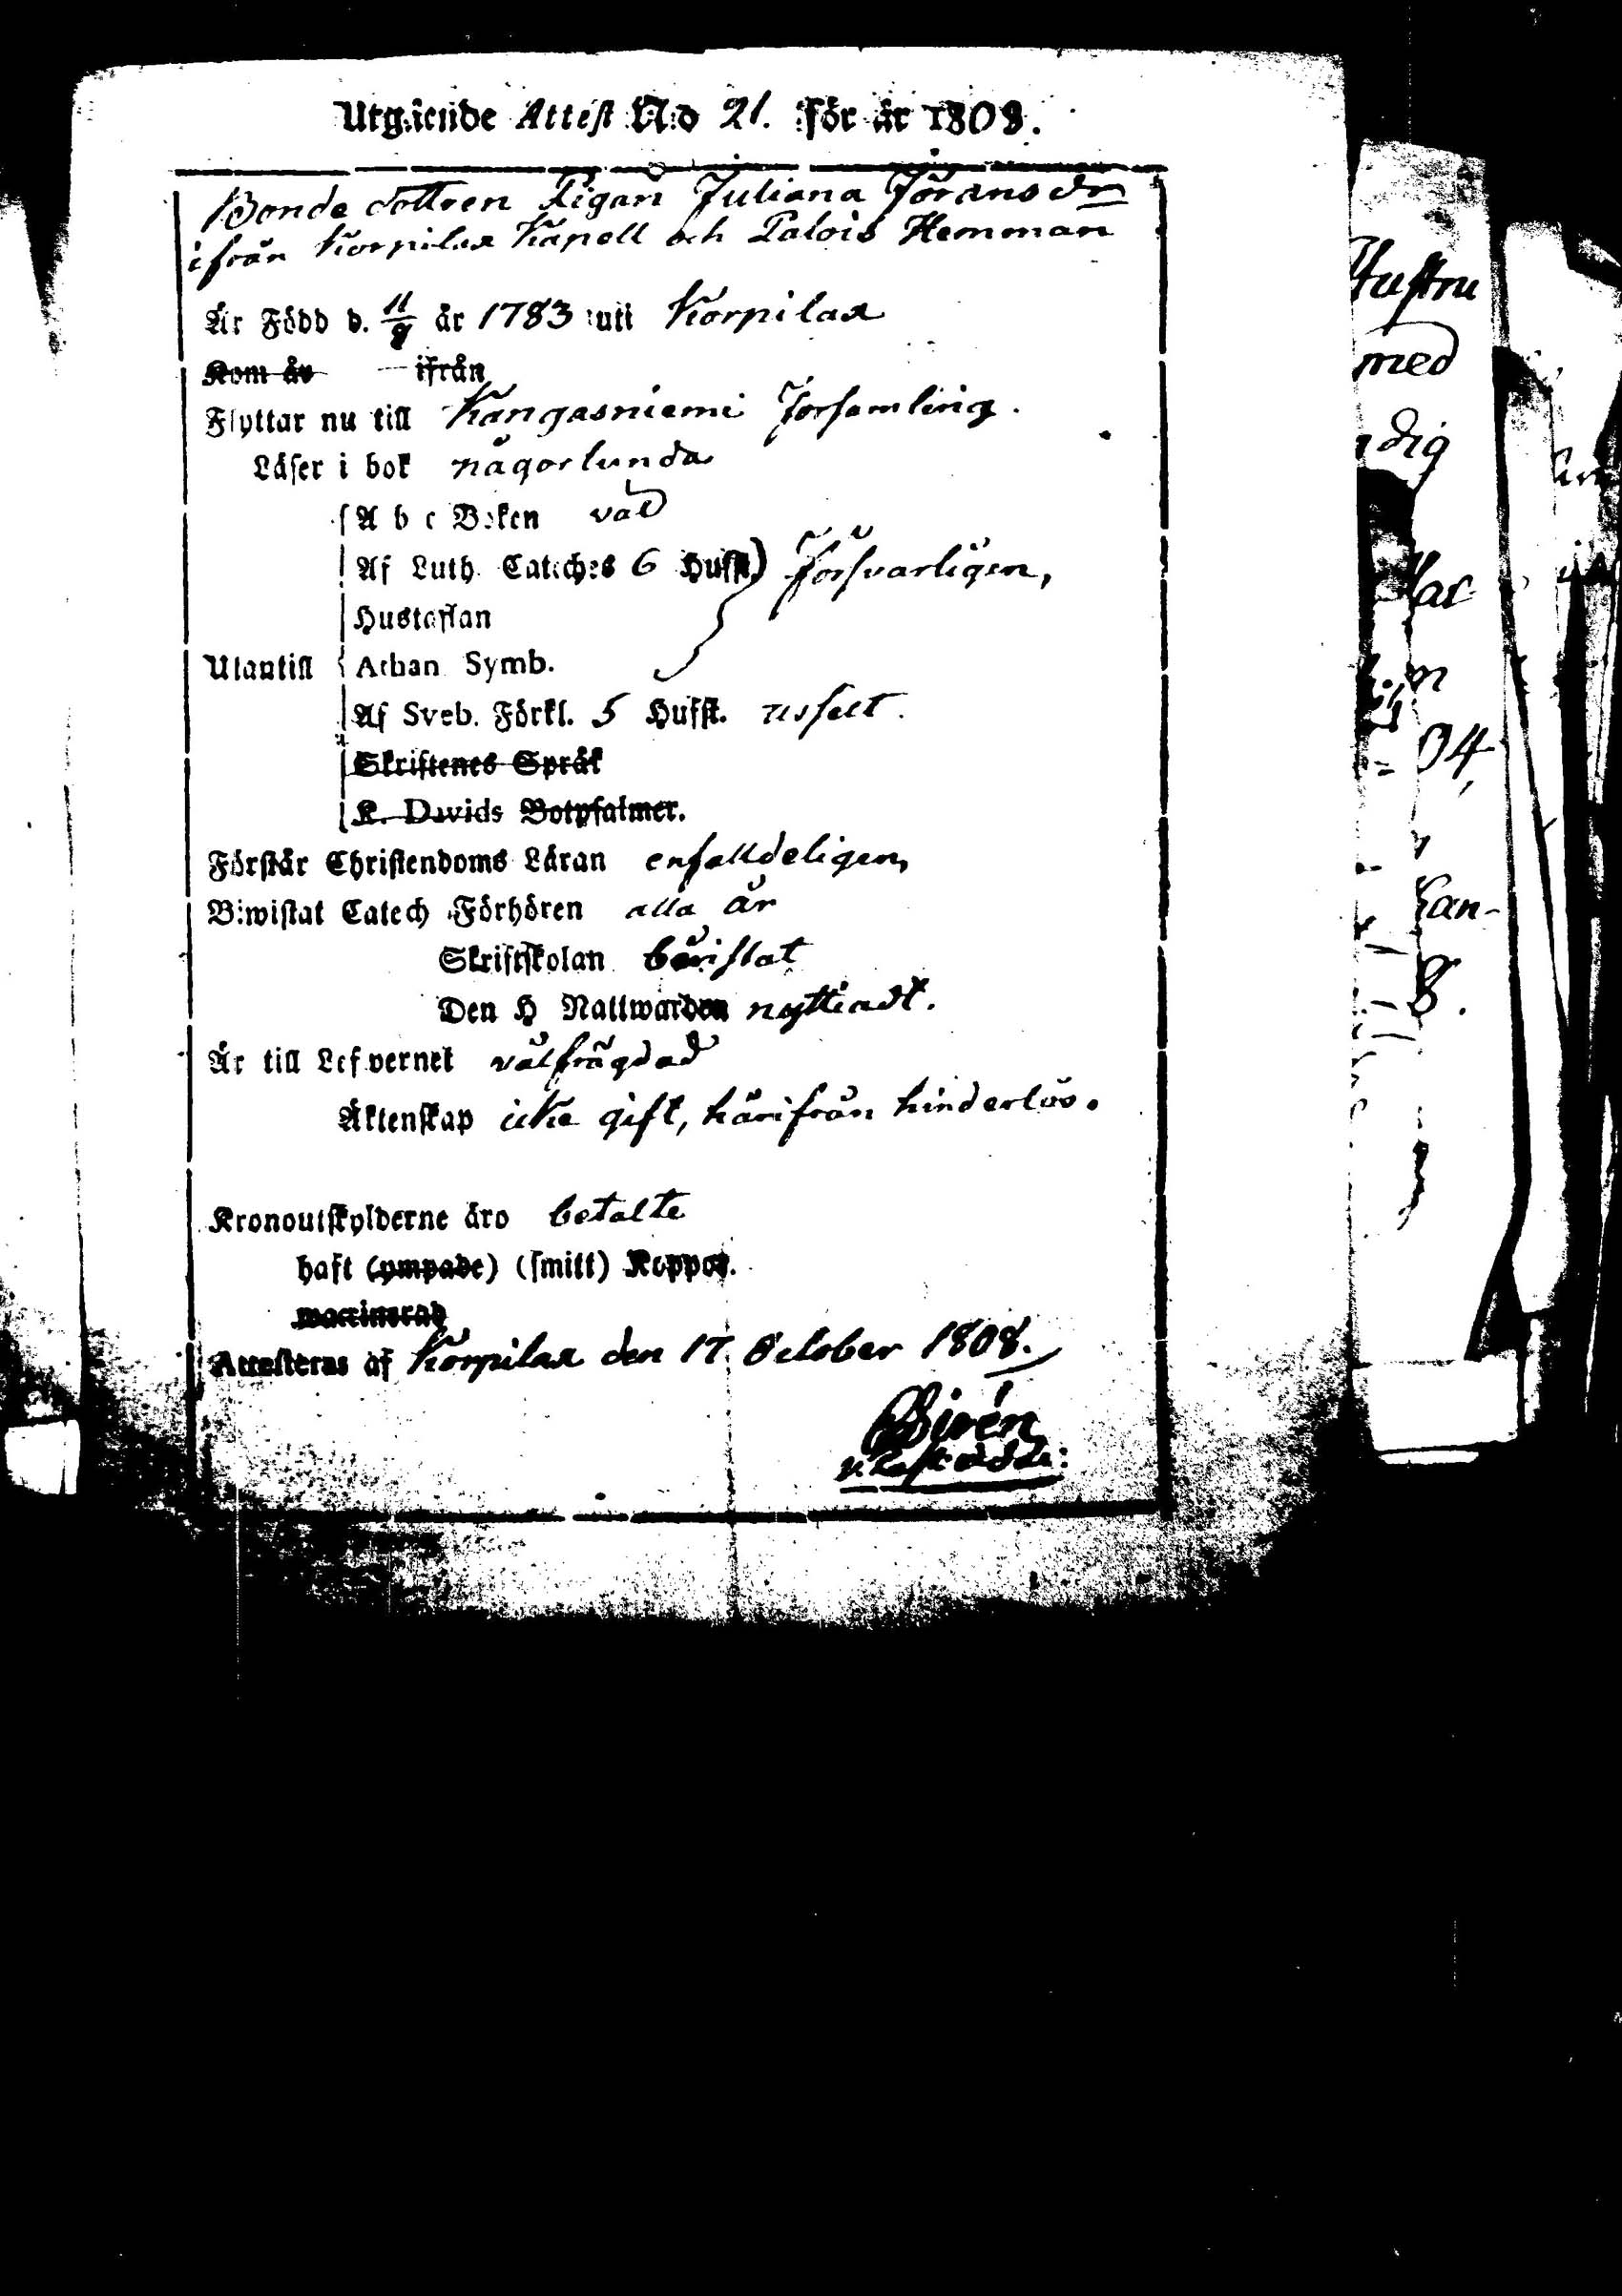 Utgående Attest N:o 21. För år 1808.
Bonde dottren Pigan Juliana Jöransdr
ifrån Korpilax Kapell och Palois Hemman
Är Född d. 11/9 år 1783 uti Korpilax
Kom år ifrån
Flyttar nu till Kangasniemi Församling.
Läser i bok någorlunda
A b c Boken väl
Af Luth. Cateches 6 Hufst. Försvarligen,
Hustaflan
Utantill Athan Symb.
Af Sveb. Förkl. 5 Hufst. uselt.
Skriftenes Språk
K. Davids Botpsalmer.
Förstår Christendoms Läran enfaldeligen,
Biwistat Catech Förhören alla år
Skriftskolan bevistat
Den H Nattwarden nyttiadt.
Är till Lefvernet välfrägdad
Äktenskap icke gift, härifrån hinderlös.
Kronoutskylderne äro betalte
haft (ympade) (smitt) Koppor.
waccinerad
Attesteras af Korpilax den 17 October 1808.
Birén
Hustru
med
dig
04,
8.